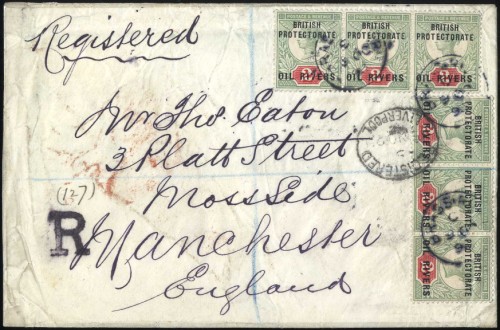 Registered
BRITISH PROTECTORATE OIL RIVERS
BRITISH PROTECTORATE OIL RIVERS
BRITISH PROTECTORATE OIL RIVERS
BRITISH PROTECTORATE OIL RIVERS
BRITISH PROTECTORATE OIL RIVERS
BRITISH PROTECTORATE OIL RIVERS
REGISTERED LIVERPOOL
Mr Thos. Eaton
3 Platt Street
Moss Side
(127)
R
Manchester
England